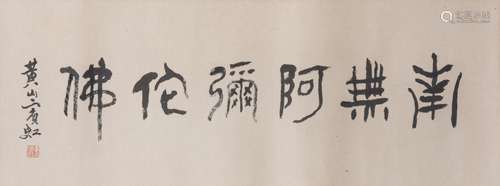 南無阿彌陀佛
黃山賓虹